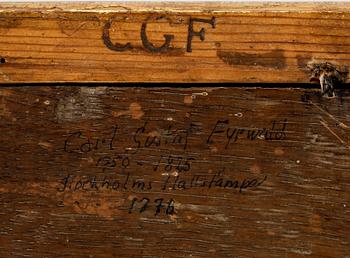 CGF
Carl Gustaf Eyrwald
1750 - 1825
Stockholms Hallstämpel
1776